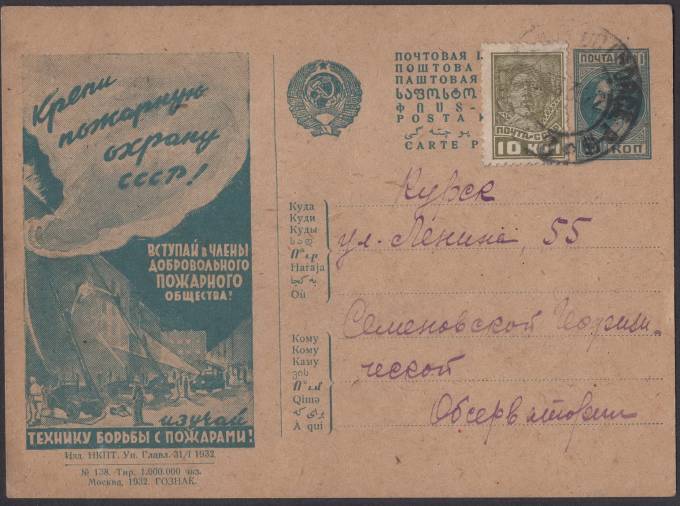 Крепи
пожарную
охрану
СССР!
ВСТУПАЙ в ЧЛЕНЫ
ДОБРОВОЛЬНОГО
ПОЖАРНОГО
ОБЩЕСТВА!
изучай
ТЕХНИКУ БОРЬБЫ С ПОЖАРАМИ!
Изд. НКПТ. Уп. Главл. 31/I 1932
№ 138. Тир. 1.000.000 экз.
Москва, 1932. ГОЗНАК.
ПОЧТОВАЯ
ПОШТОВА
ПАШТОВАЯ
ՓՈՍ-
POSTA K
CARTE P
ПОЧТА-СС
10 КОП
ПОЧТА
КОП
Куда
Куди
Куды
Ո՞ւր
Haraja
Où
Кому
Кому
Каму
ვის
Ո՞ւմ
Qimə
À qui
Курск
ул. Ленина, 55
Семеновской Геофизи-
ческой
Обсерватории